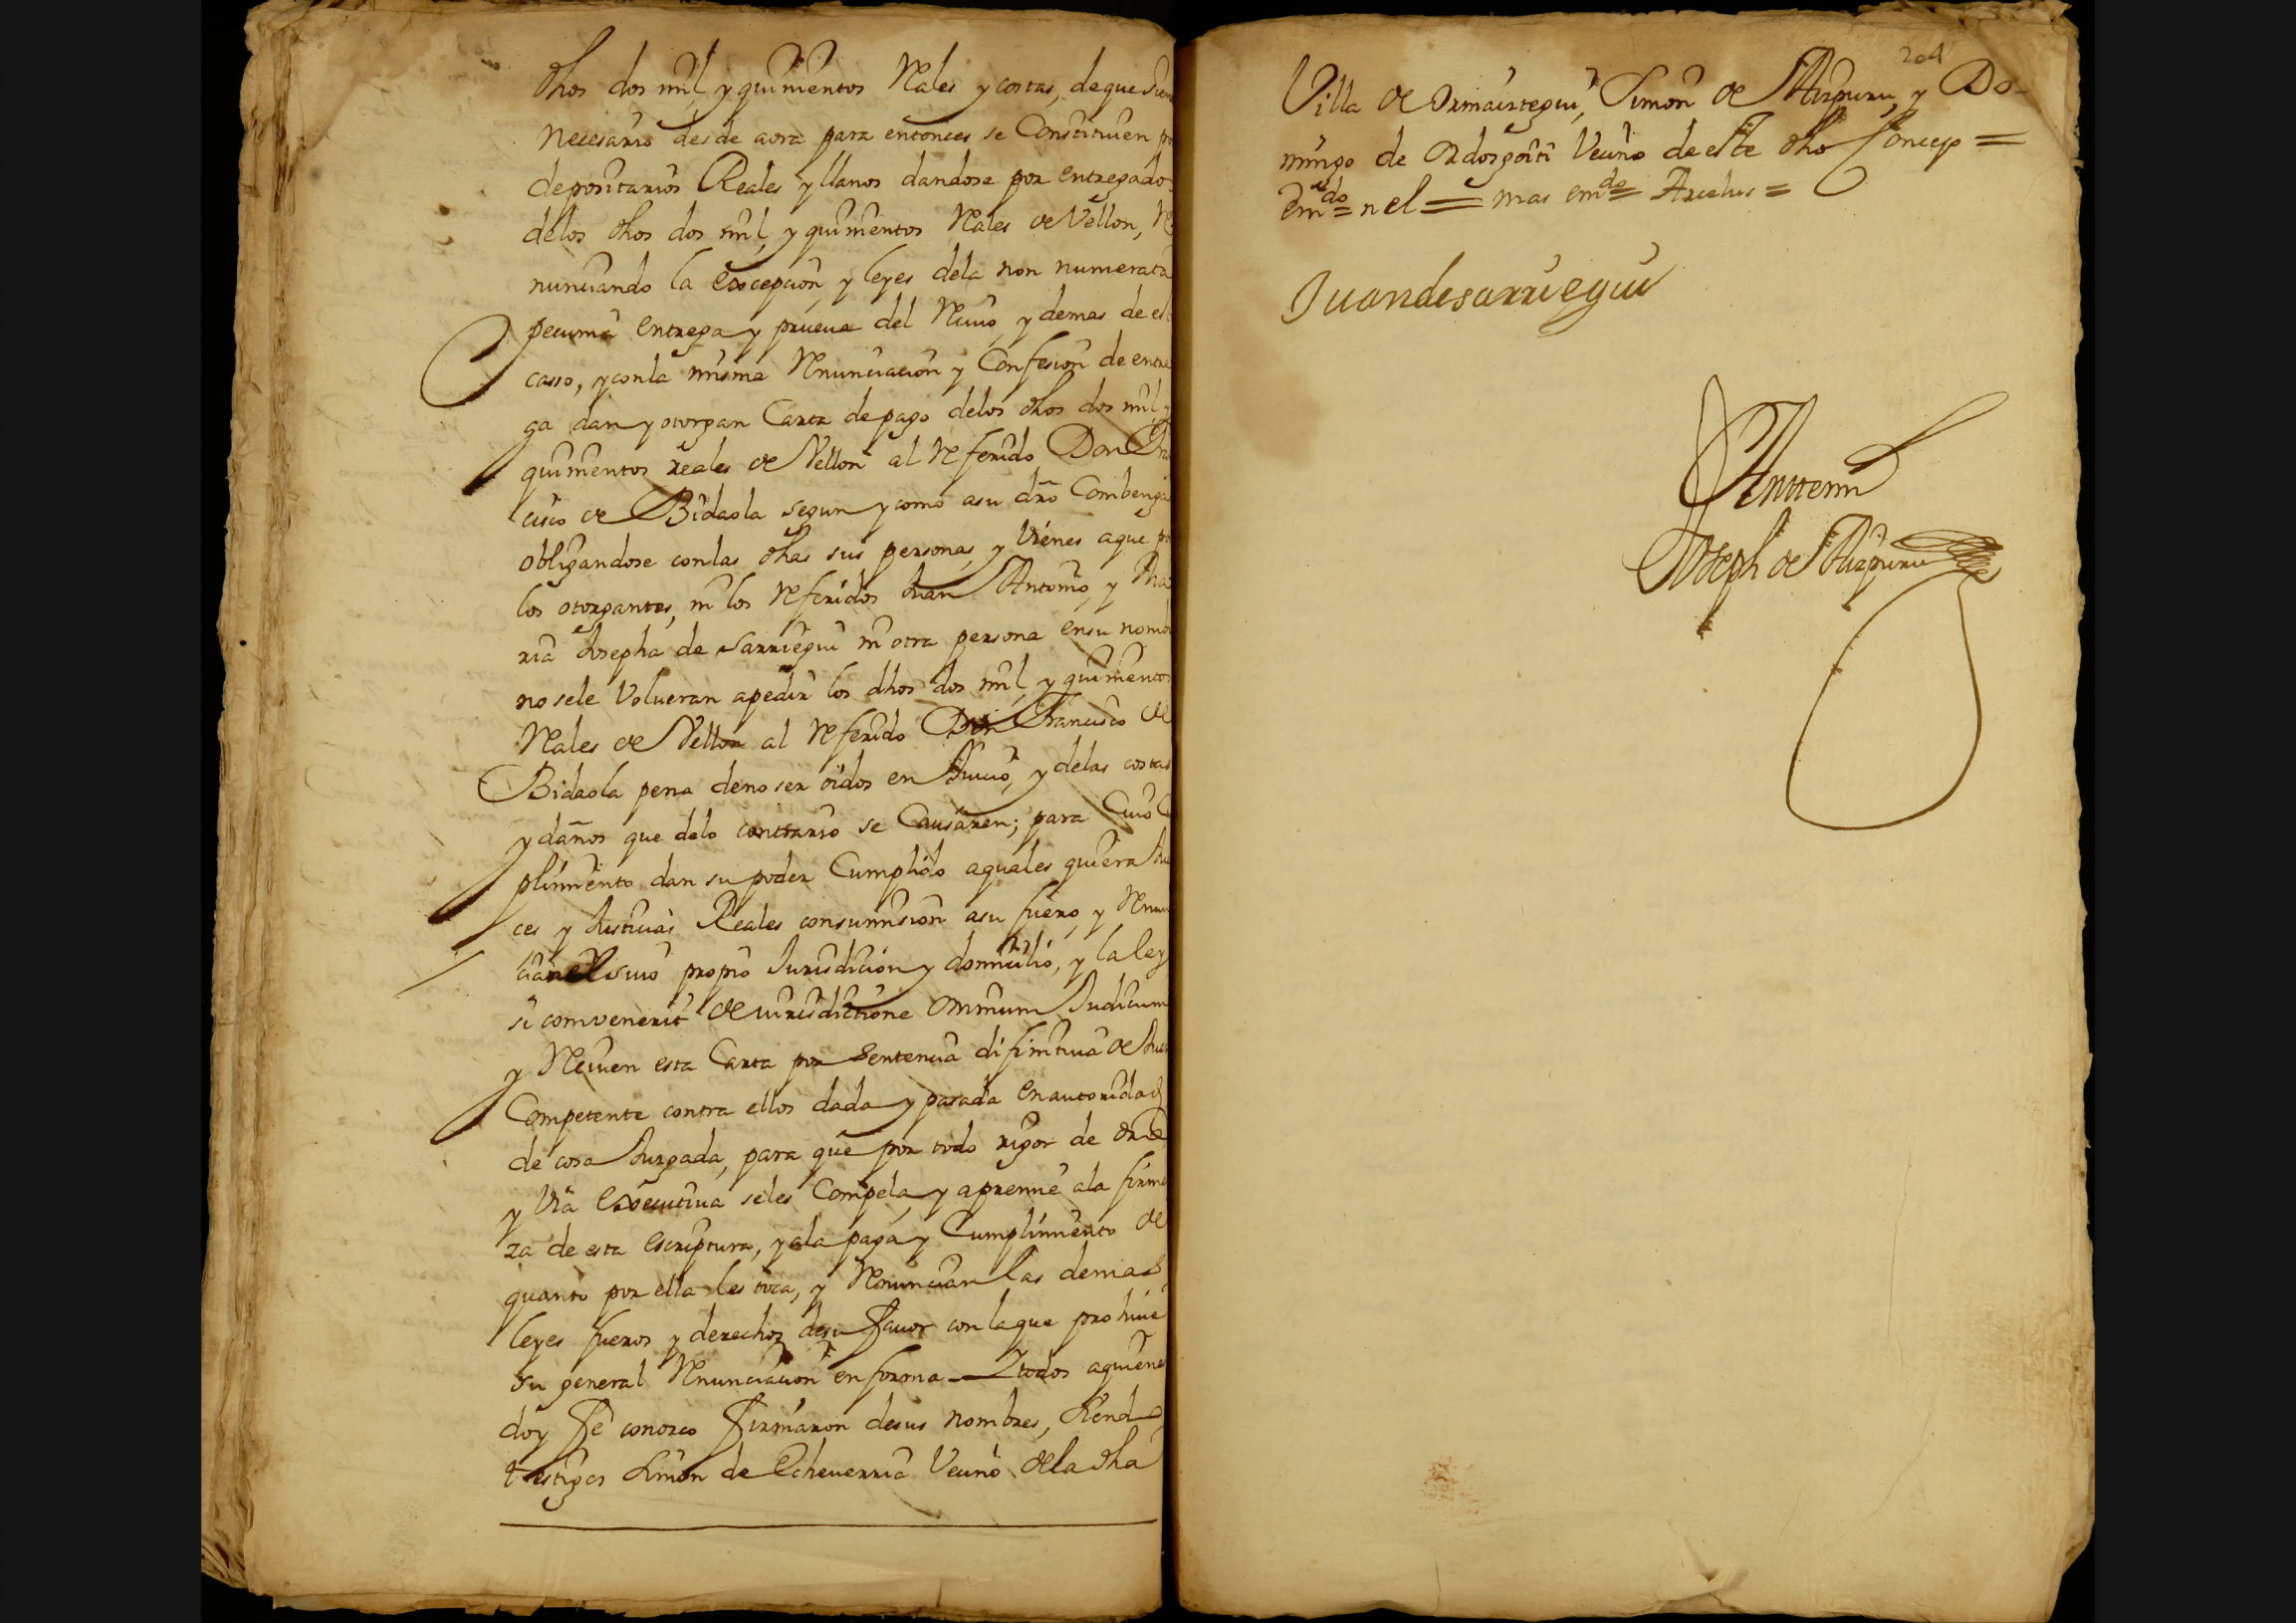 dhos dos mil, y quinientos Rales y costas, de que sien
necesario desde aora para entonces se Constituien
depositarios Reales y llanos dandose por entregados
delos dhos dos mil, y quinientos Rales de Vellon, Re
nunciando la excepcion, y leyes dela non numerata
pecunia entrega y prueua del Reciuo, y demas de es
casso, y conla misma Renunciacion y Confesion de entre
ga dan y otorgan Carta de pago delos dhos dos mil, y
quinientos reales de Vellon al Referido Don Fran
cisco de Bidaola segun y como asu dro Combenga
obligandose conlas dhas sus personas, y vienes a que
los otorgantes, ni los Referidos Juan Antonio, y Ma
ria Josepha de Sarriegui ni otra persona ensu nomb
no sele Volueran apedir los dhos dos mil, y quinientos
Rales de Vellon al Referido Don Francisco de
Bidaola pena deno ser oidos en Juicio, y delas costas
y daños que delo contrario se Causaren; para Cuio C
plimiento dan su poder Cumplido aquales quiera Jue
ces y Justicias Reales consumision asu fuero, y Renun
cian el suio propio Jurisdicion y domicilio, y la ley
si convenerit de iurisdictione omnium Judicum
y Reciuen esta Carta por sentencia difinitiua de Juez
Competente contra ellos dada y pasada en autoridad
de cosa Juzgada, para que por todo rigor de dro
y via executiua seles Compela, y apremie ala firme
za de esta escriptura, y ala paga y Cumplimiento de
quanto por ella les toca, y Renuncian las demas
leyes fueros y derechos desu fauor con la que prohiue
su general Renunciacion en forma Y todos aquiene
doy fe conozco firmaron desus nombres, siendo
testigos Simon de Echeuerria Vecino dela dha
204
Villa de Ormaiztegui, Simon de Aizpuru, y Do-
mingo de Ordozgoiti Vecino de este dho Concejo =
em.do = n el = mas em.do = Arelus =
Juan de sarriegui
Antte mi
Joseph de Aizpuru